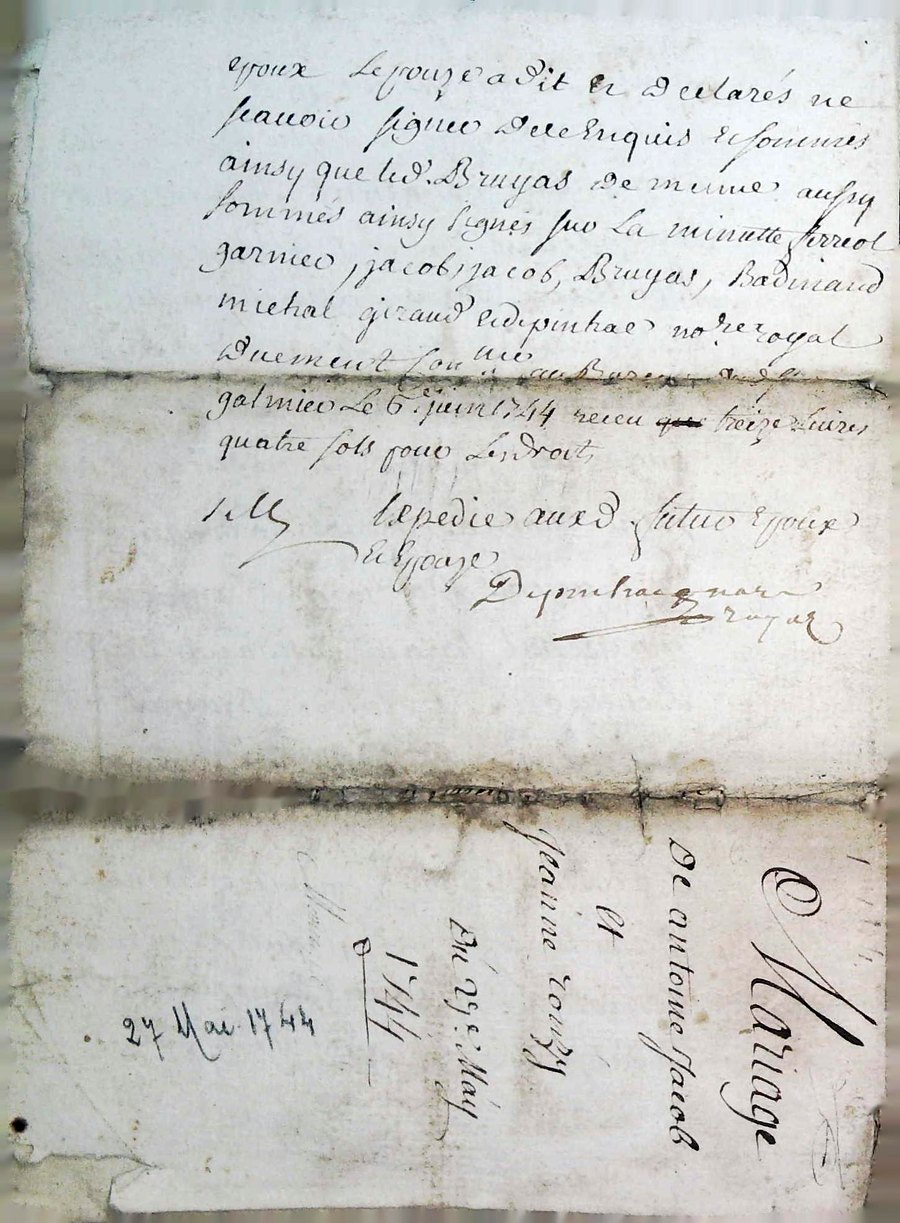 epoux Lepouze a dit et declarés ne
scauoir signer dece enquis et sommés
ainsy que led. Bruyas de meme aussy
sommés ainsy signés sur La minutte ferreol
garnier, jacob, jacob, Bruyas, Badinand
michal giraud et depinhac no.re royal
duement Con au Bureau
galmier Le 6 juin 1744 receu treize Liures
quatre sols pour Les droits
Expedié auxd. futur Epoux
Et Epouze
Depinhac
royal
Mariage
De antoine Jacob
et
Jeanne rouzy
Du 27e. May
1744
27 Mai 1744